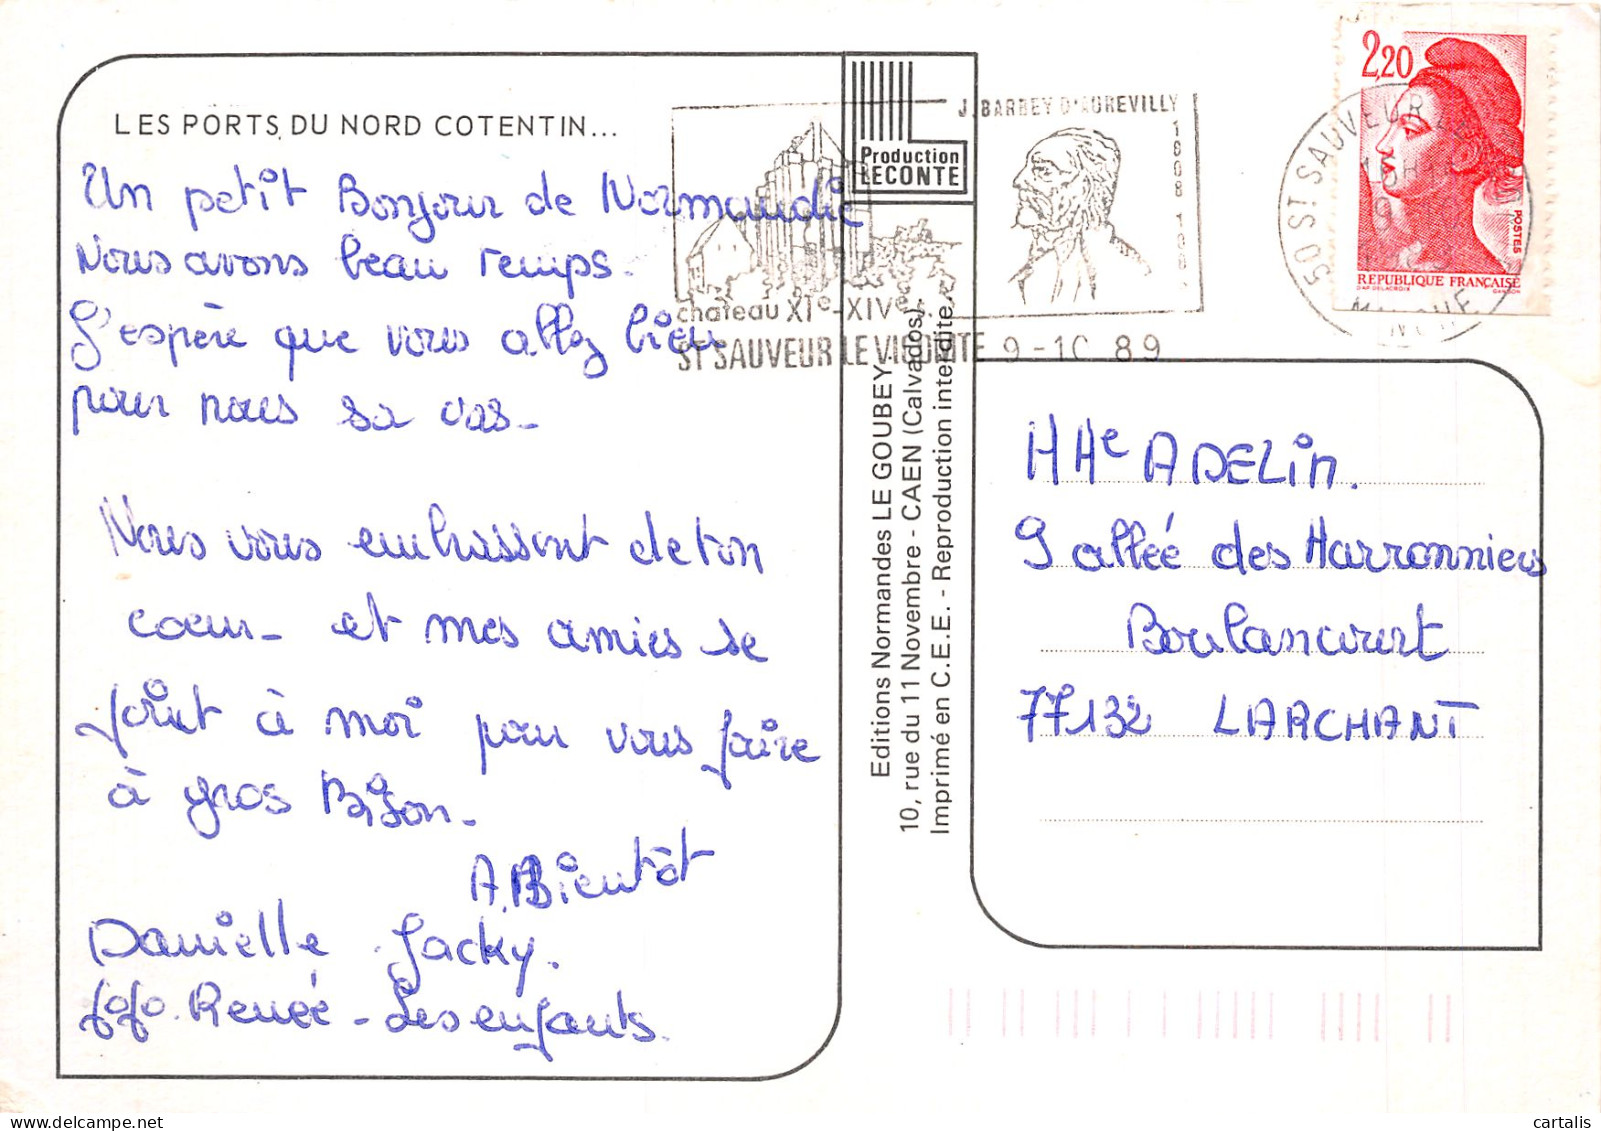 LES PORTS DU NORD COTENTIN...
Un petit Bonjour de Normandie
Nous avons beau temps.
J'espère que vous allez bien
pour nous sa vas-
Nous vous embrassont de ton
coeur- et mes amies se
joint à moi pour vous faire
à gros Bison-
A. Bientôt
Danielle Jacky.
fofo. Renée - Les enfants.
Production
LECONTE
J. BARBEY D'AUREVILLY
1808
château XIe-XIVe
ST SAUVEUR LE VICOMTE 9-10 89
Editions Normandes LE GOUBEY
10, rue du 11 Novembre - CAEN (Calvados)
Imprimé en C.E.E. - Reproduction interdite
2,20
POSTES
REPUBLIQUE FRANÇAISE
D'AP DELACROIX GANDON
50 ST SAUVEUR LE
MANCHE
HHe ADELin.
9 allée des Harronniers
Boulancourt
77132 LARCHANT
cartalis | delcampe.net